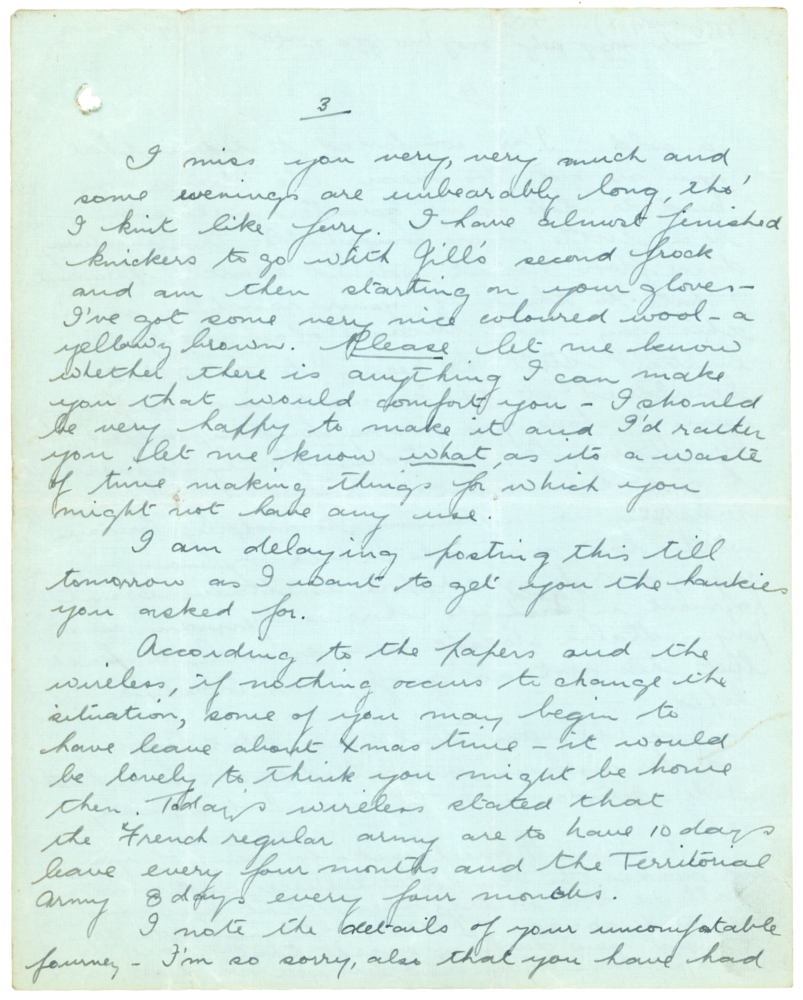 3
I miss you very, very much and
some evenings are unbearably long, tho'
I knit like fury. I have almost finished
knickers to go with Jill's second frock
and am then starting on your gloves –
I've got some very nice coloured wool – a
yellowy brown. Please let me know
whether there is anything I can make
you that would comfort you – I should
be very happy to make it and I'd rather
you let me know what, as its a waste
of time making things for which you
might not have any use.
I am delaying posting this till
tomorrow as I want to get you the hankies
you asked for.
According to the papers and the
wireless, if nothing occurs to change the
situation, some of you may begin to
have leave about Xmas time – it would
be lovely to think you might be home
then. Today's wireless stated that
the French regular army are to have 10 days
leave every four months and the Territorial
Army 8 days every four months.
I note the details of your uncomfortable
journey – I'm so sorry, also that you have had